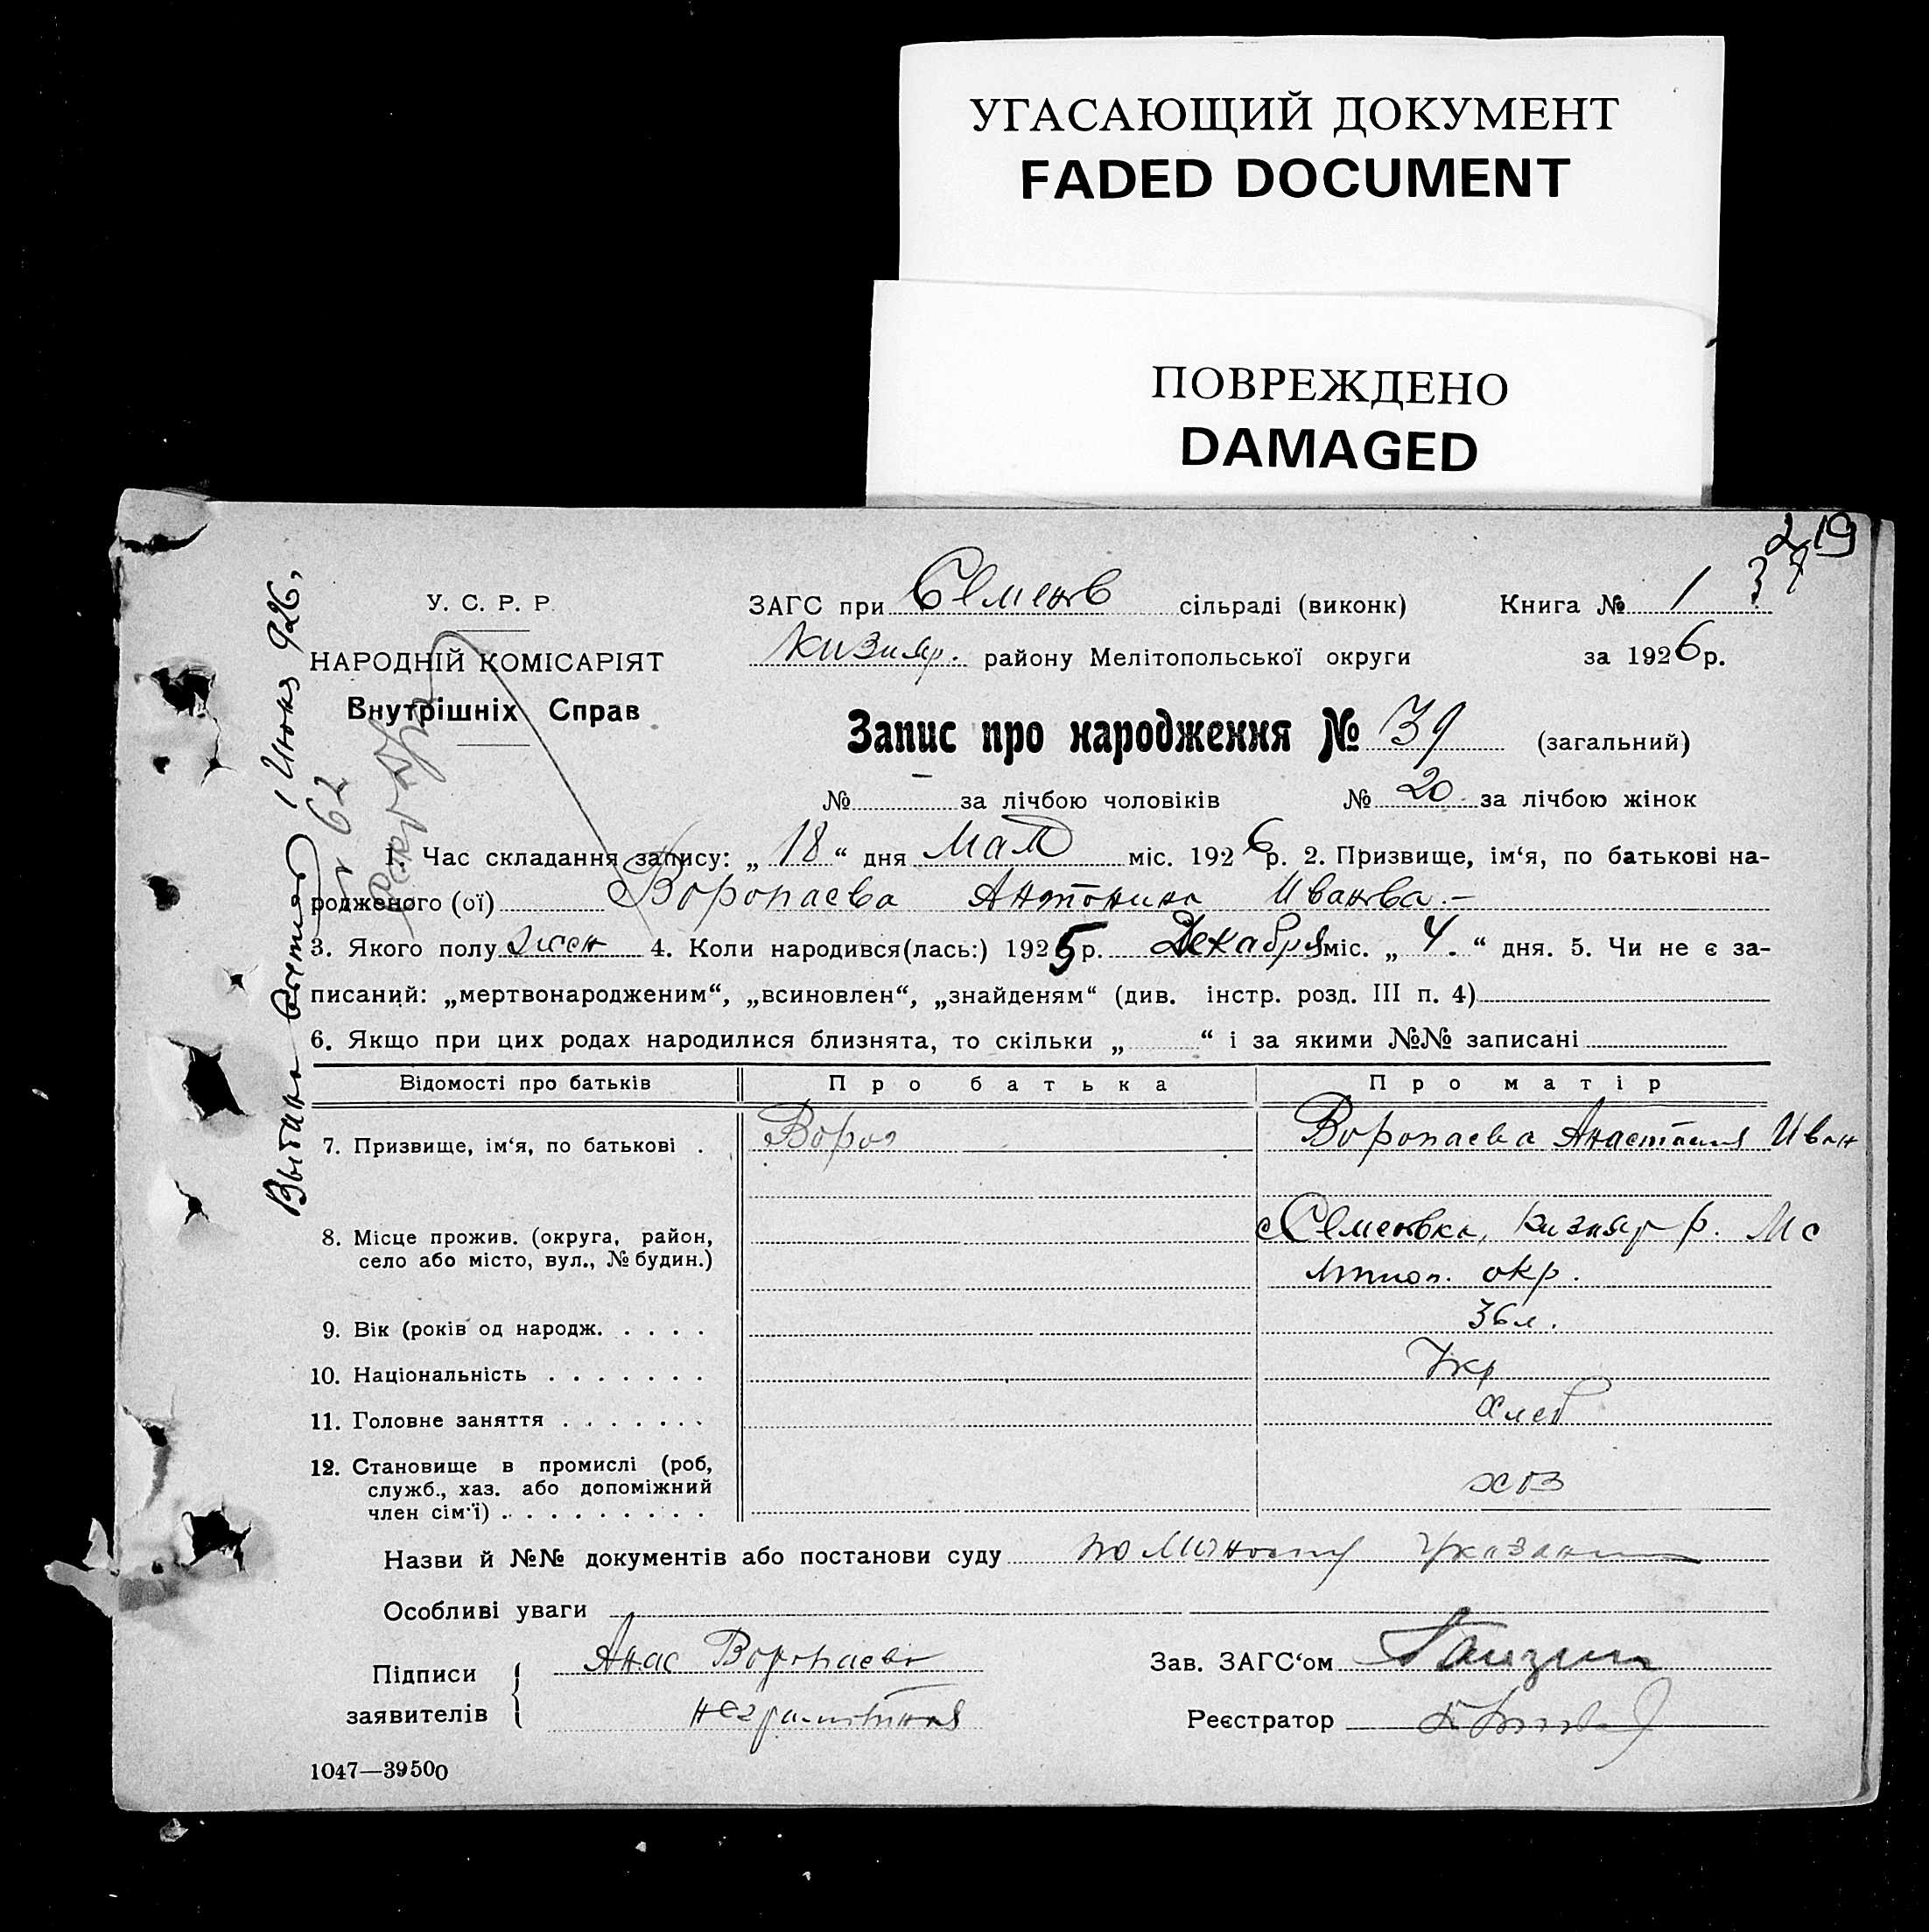 УГАСАЮЩИЙ ДОКУМЕНТ
FADED DOCUMENT
ПОВРЕЖДЕНО
DAMAGED
219
37
У. С. Р. Р.
НАРОДНІЙ КОМІСАРІЯТ
Внутрішніх Справ
ЗАГС при Семенов сільраді (виконк) Книга № 1
Кизияр. району Мелітопольської округи за 1926 р.
Запис про народження № 39 (загальний)
№ — за лічбою чоловіків № 20 за лічбою жінок
1. Час складання запису: „ 18 “ дня Мая міс. 1926 р. 2. Призвище, ім‘я, по батькові на-
родженого (ої) Воропаева Антонина Иванова.–
3. Якого полу жен 4. Коли народився(лась:) 1925 р. Декабря міс. „ 4. “ дня. 5. Чи не є за-
писаний: „мертвонародженим“, „всиновлен“, „знайденям“ (див. інстр. розд. III п. 4)
6. Якщо при цих родах народилися близнята, то скільки „ “ і за якими №№ записані
Відомості про батьків Про батька Про матір
7. Призвище, ім‘я, по батькові . Вороп Воропаева Анастасия Иван
8. Місце прожив. (округа, район, село або місто, вул., № будин.) с Семеновка, Кизияр р. Ме
литоп. окр.
9. Вік (років од народж. . . . . 36 л.
10. Національність . . . . . . . Укр
11. Головне заняття . . . . . . . Хлеб
12. Становище в промислі (роб,
служб., хаз. або допоміжний
член сім‘ї) . . . . . . . . . хоз
Назви й №№ документів або постанови суду по личному указанию
Особливі уваги
Підписи Анас Воропаева Зав. ЗАГС‘ом
заявителів неграмотная Реєстратор
1047—39500
1 Июня 926,
62